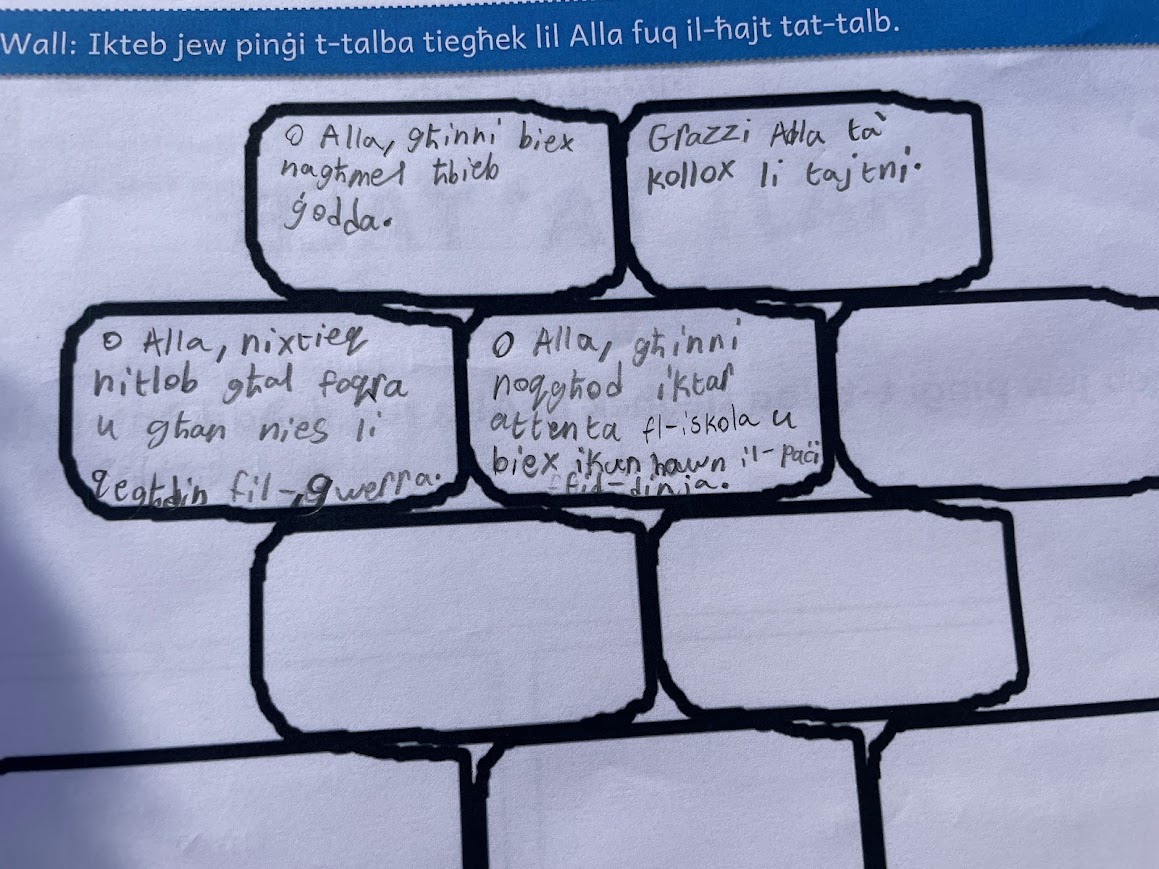 Wall: Ikteb jew pinġi t-talba tiegħek lil Alla fuq il-ħajt tat-talb.
O Alla, għinni biex
nagħmel ħbieb
ġodda.
Grazzi Alla ta'
kollox li tajtni.
O Alla, nixtieq
nitlob għal foqra
u għan nies li
qegħdin fil-gwerra.
O Alla, għinni
noqgħod iktar
attenta fl-iskola u
biex ikun hawn il-paċi
fid-dinja.